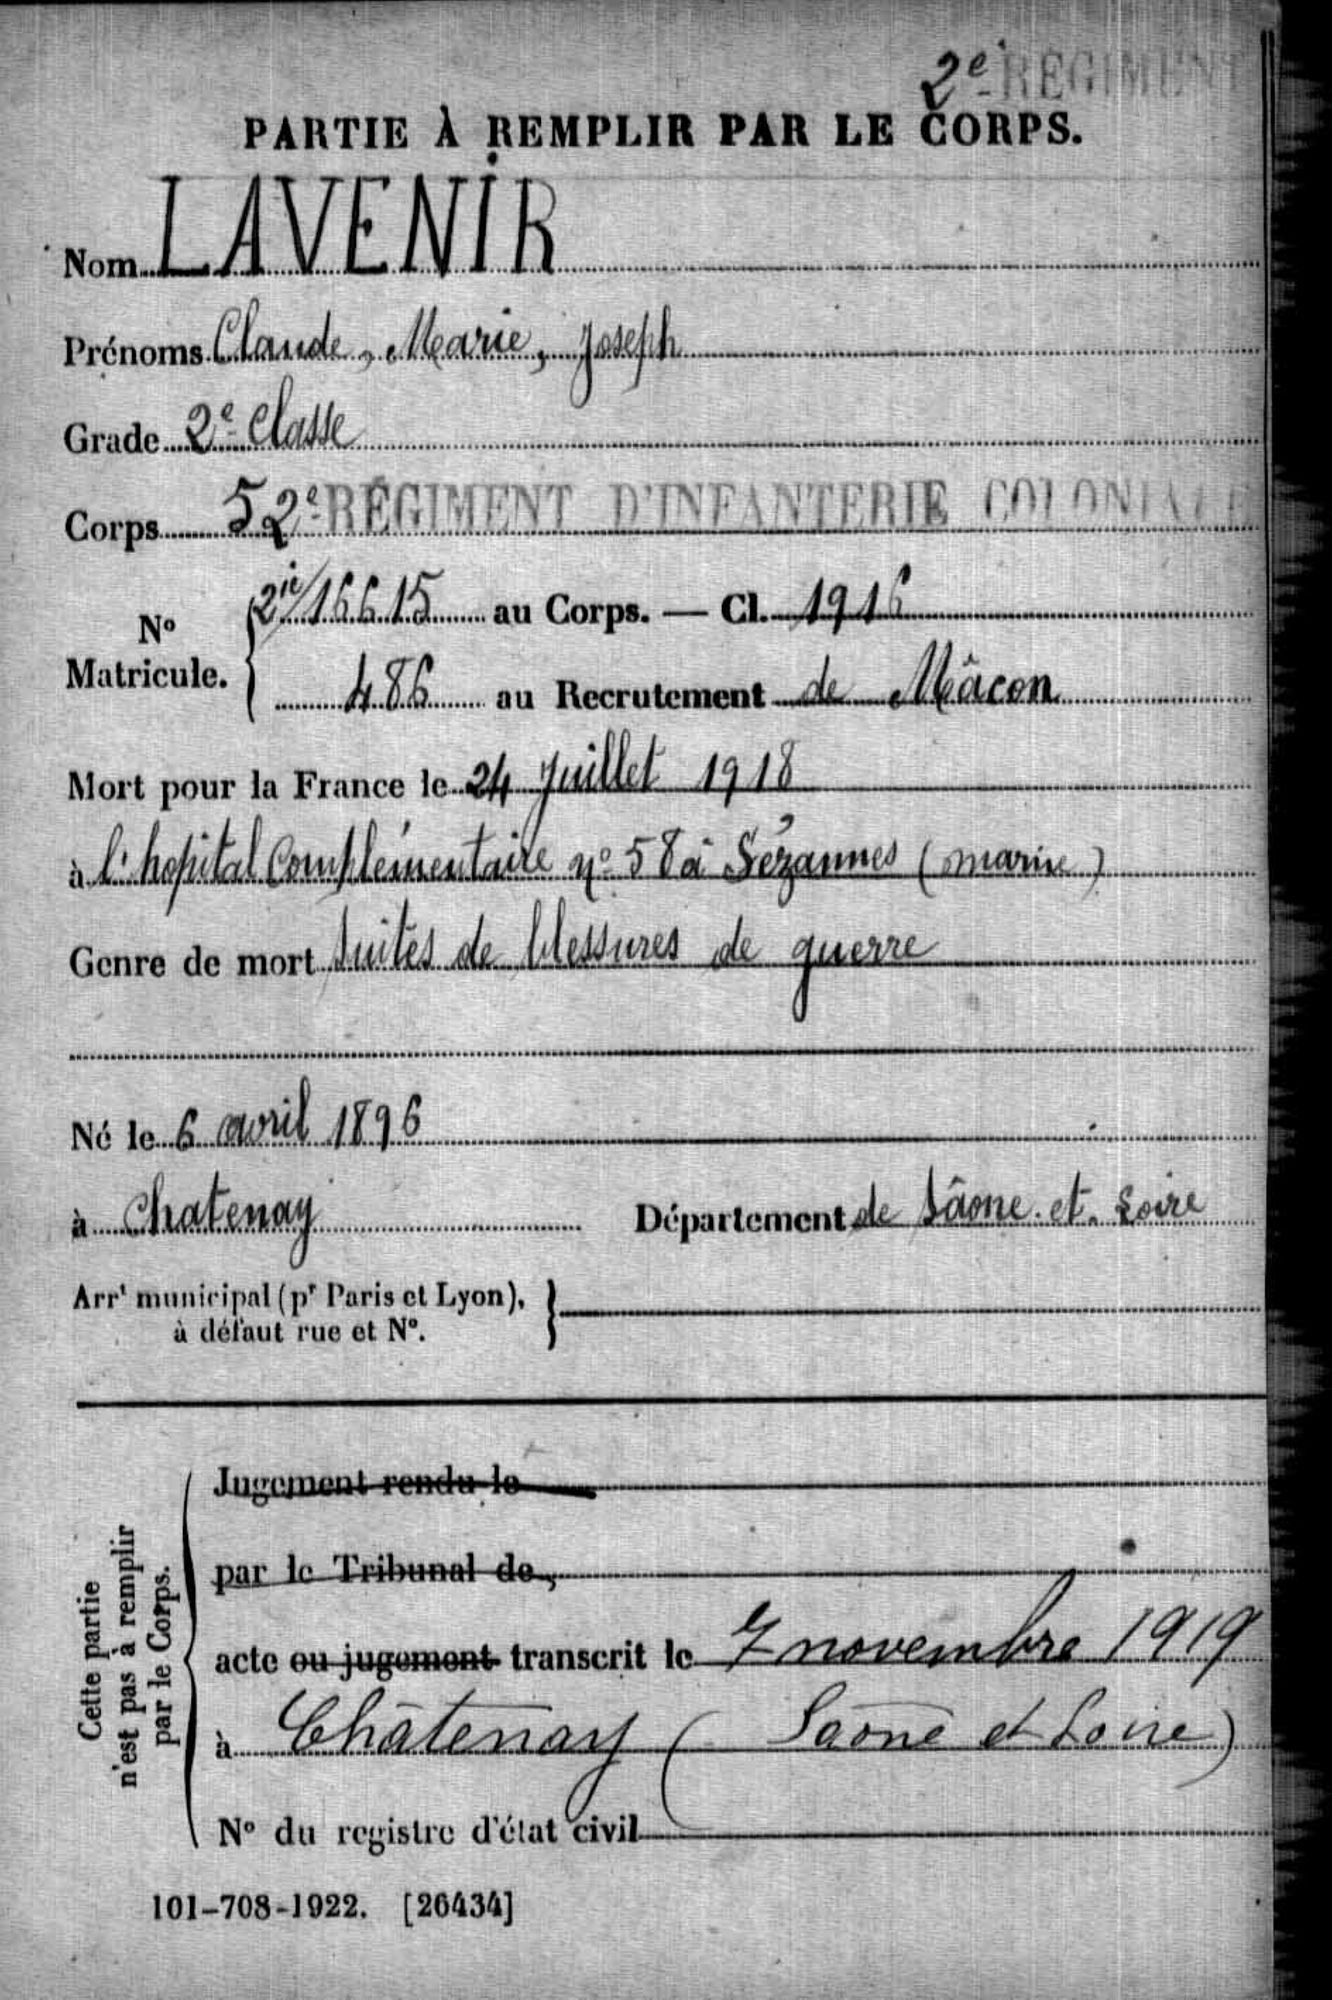 2e RÉGIMENT
PARTIE À REMPLIR PAR LE CORPS.
Nom LAVENIR
Prénoms Claude, Marie, Joseph
Grade 2e Classe
Corps 52e RÉGIMENT D'INFANTERIE COLONIALE
No Matricule. { 2ic/16615 au Corps. — Cl. 1916
486 au Recrutement de Mâcon
Mort pour la France le 24 Juillet 1918
à l'hopital Complémentaire no 58 à Sézannes (marne)
Genre de mort Suites de blessures de guerre
Né le 6 avril 1896
à Chatenay Département de Sâone-et-Loire
Arrt municipal (pr Paris et Lyon),
à défaut rue et No.
Cette partie
n'est pas à remplir
par le Corps.
Jugement rendu le
par le Tribunal de,
acte ou jugement transcrit le 7 novembre 1919
à Châtenay (Saone et Loire)
No du registre d'état civil
101-708-1922. [26434]